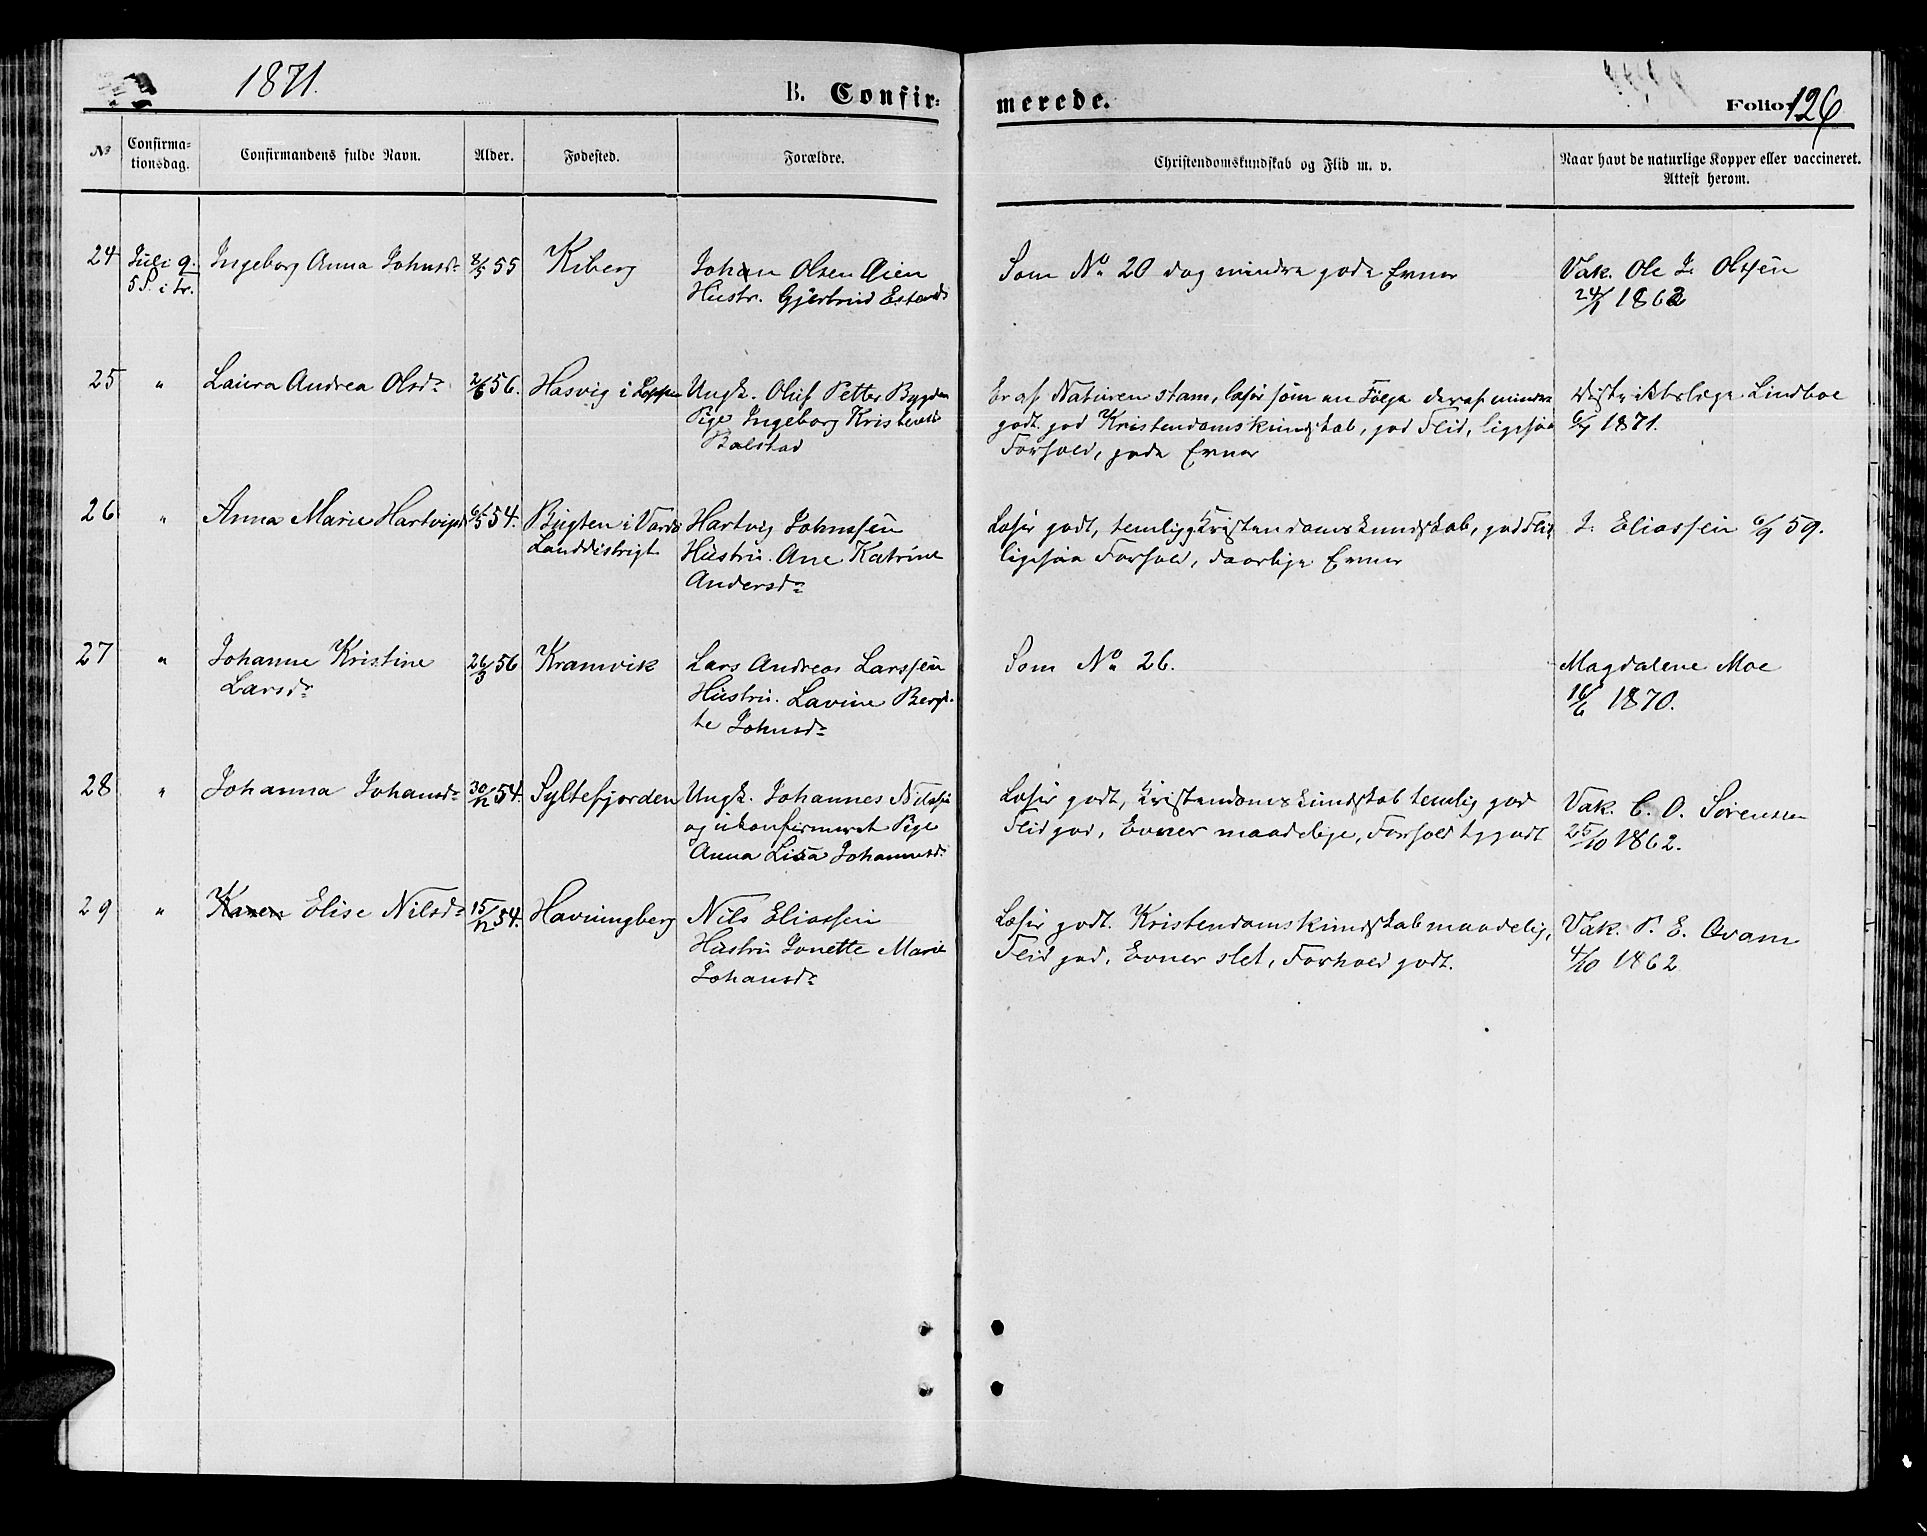 1871.
B. Confir-
merede.
Folio 126
No
Confirma-
tionsdag.
Confirmandens fulde Navn.
Alder.
Fødested.
Forældre.
Christendomskundskab og Flid m. v.
Naar havt de naturlige Kopper eller vaccineret.
Attest herom.
24 Juli 9. Ingeborg Anna Johnsdr 55 Kiberg Johan Olsen Som No 20 dog mindre gode Evner Vak. Ole J. Olsen
5 S. i tr. Hustr. Gjertrud 24/ 1862
25 " Laura Andrea Olsdr 2/6 56. Hasvig i Loppen Ungk. Oluf Petter Er af Naturen stam, læser som en Følge deraf mindre Distriktslæge Lindboe
Pige Ingeborg godt. god Kristendomskundskab, god Flid, ligesaa 6/7 1871.
Balstad Forhold, gode Evner
26 " Anna Marie Hartvigsd 6/5 54. Bugten i Vardø Hartvig Johnssen Læser godt, temlig g Kristendomskundskab, god Flid, J. Eliassen 6/9 59.
Landdistrigt Hustru. Ane Katrine ligesaa Forhold, daarlige Evner
Andersdr
27 " Johanne Kristine 26/3 56 Kramvik Lars Andreas Larssen Som No 26. Magdalene Moe
Larsdr Hustru. Lavine Bergi- 16/6 1870.
te Johnsdr
28 " Johanna Johansdr 30/12 54. Syltefjorden Ungk. Johannes Nilssen Læser godt, Kristendomskundskab temlig god Vak. C. O. Sørensen
og ukonfirmeret Pige Flid god, Evner maadelige, Forhold 25/10 1862.
Anna Lisa Johannesdr
29 " Karen Elise Nilsdr 15/12 54. Havningberg Nils Eliassen Læser godt. Kristendomskundskab maadelig, Vak. P. E. Qvam
Hustru Jonette Marie Flid god, Evner slet, Forhold godt. 4/10 1862
Johansdr